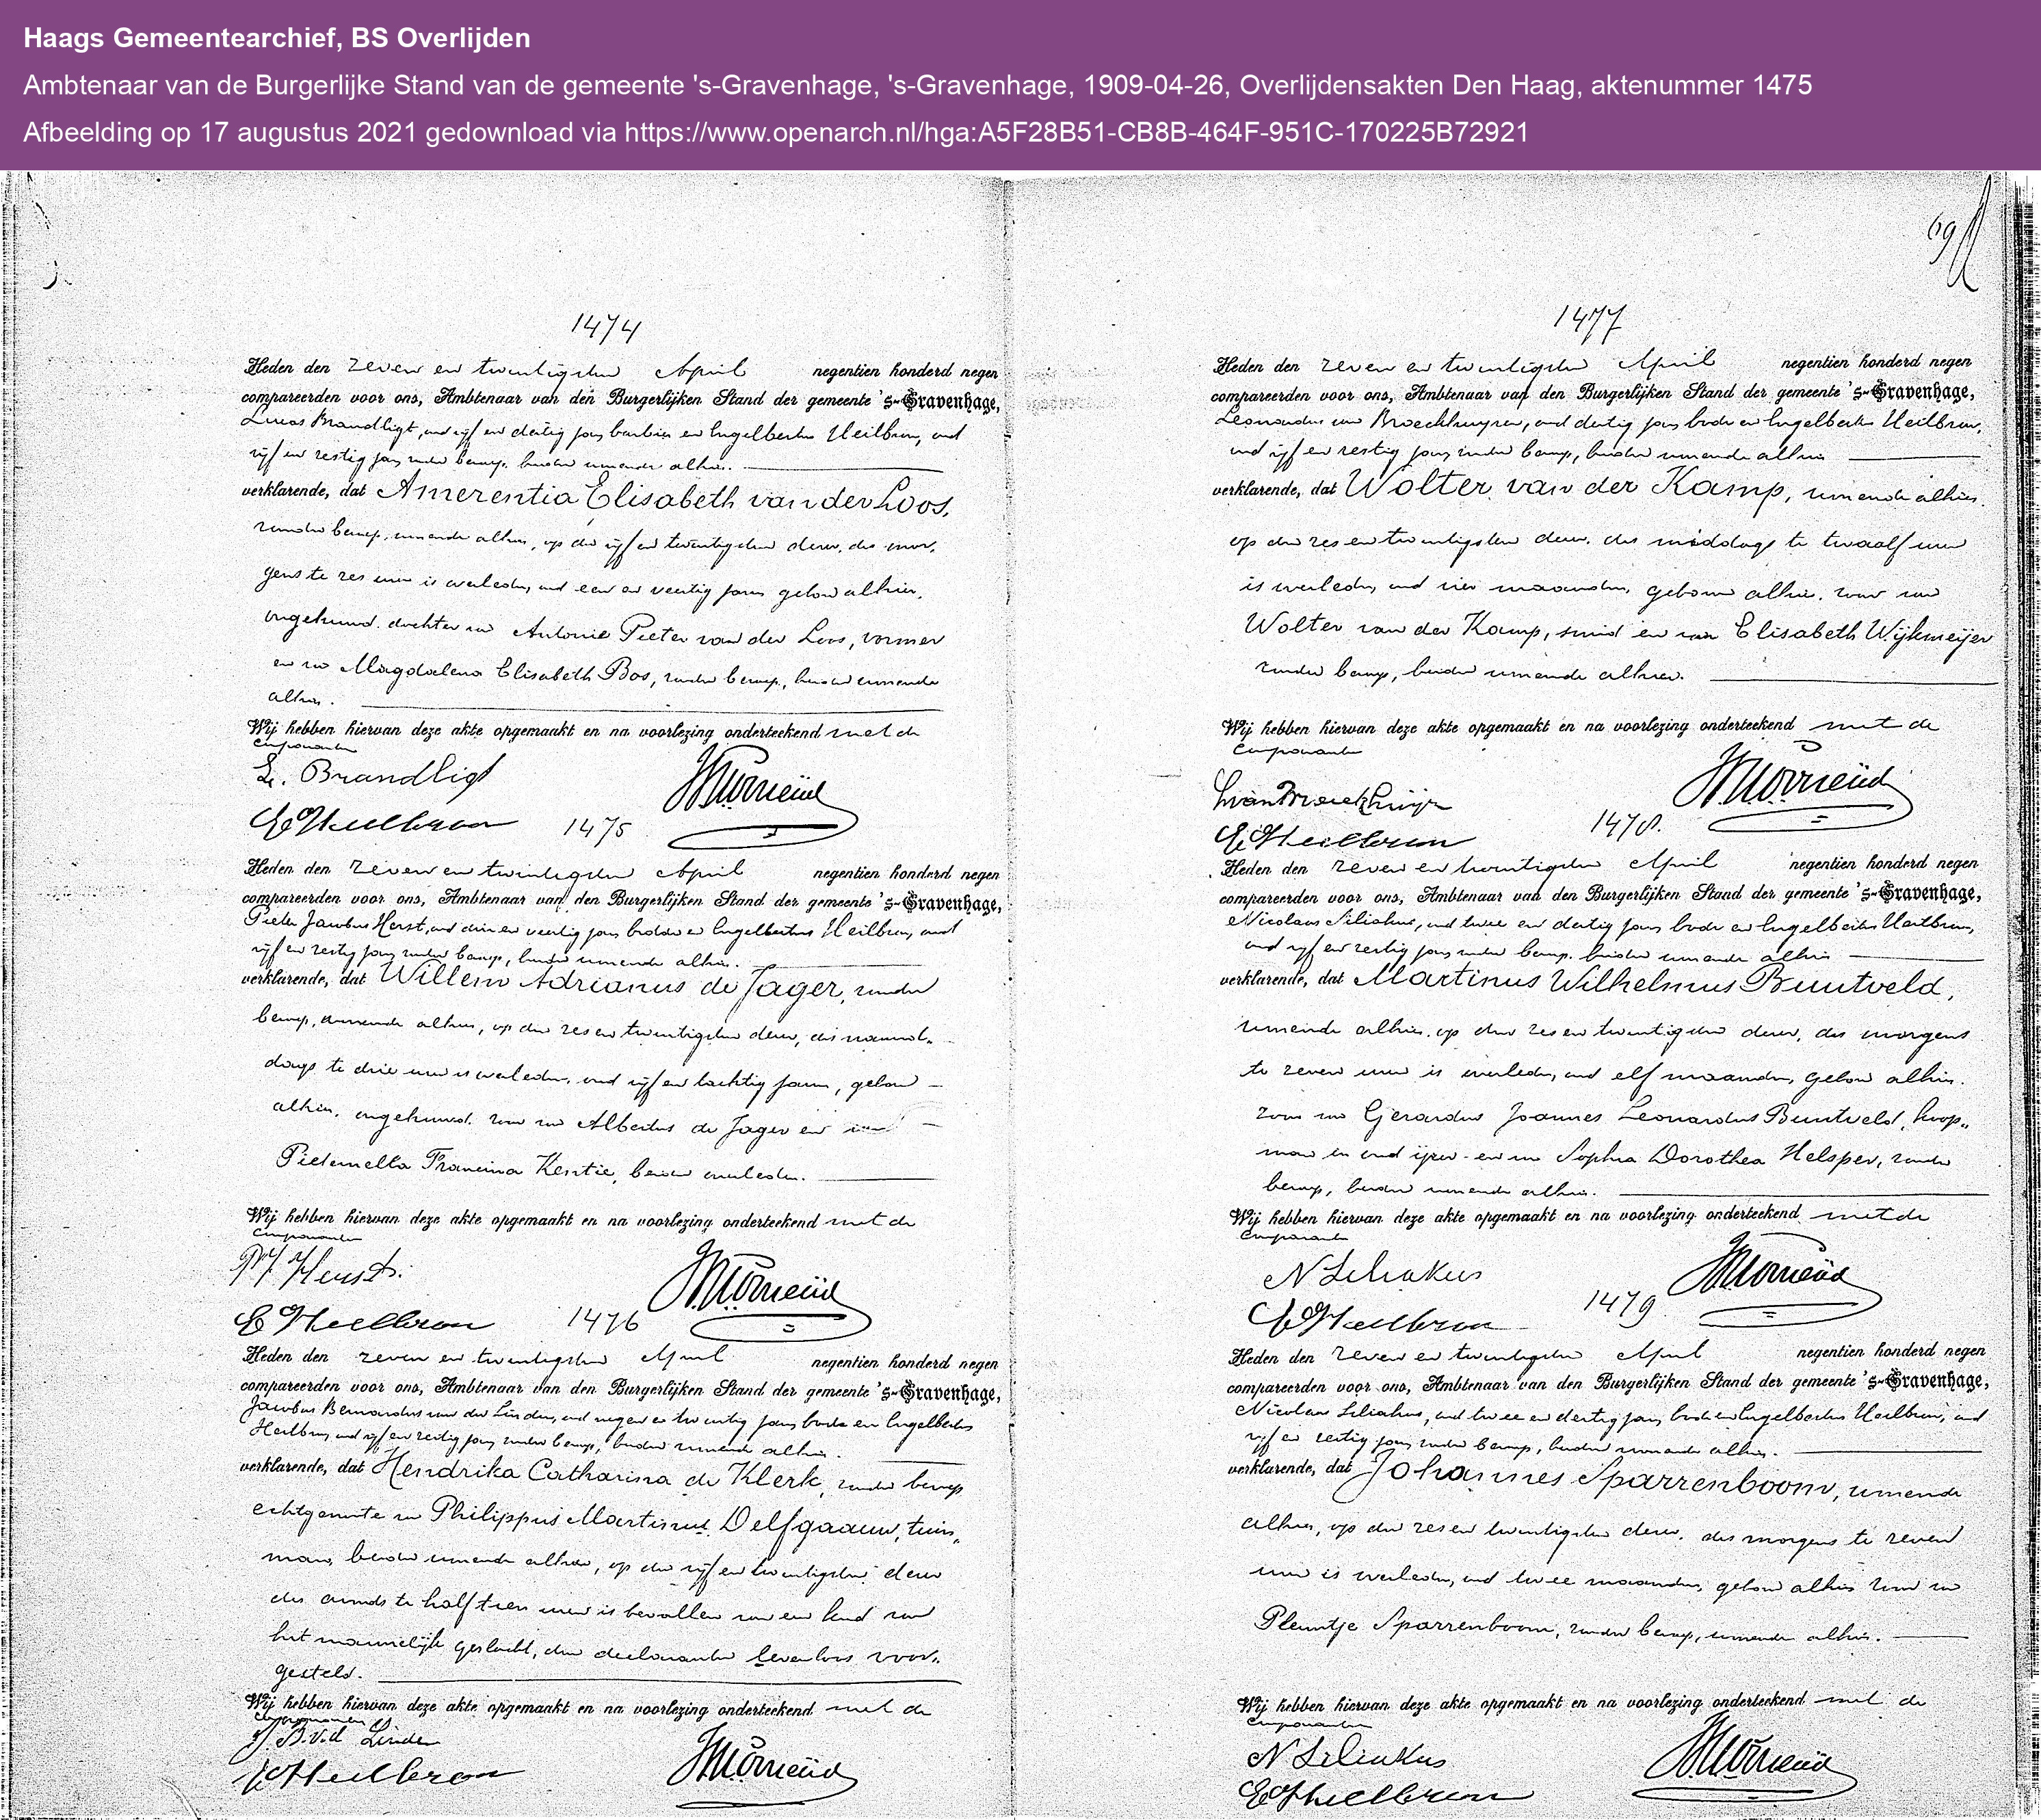 Haags Gemeentearchief, BS Overlijden
Ambtenaar van de Burgerlijke Stand van de gemeente 's-Gravenhage, 's-Gravenhage, 1909-04-26, Overlijdensakten Den Haag, aktenummer 1475
Afbeelding op 17 augustus 2021 gedownload via https://www.openarch.nl/hga:A5F28B51-CB8B-464F-951C-170225B72921
1474
Heden den zeven en twintigsten April negentien honderd negen
compareerden voor ons, Ambtenaar van den Burgerlijken Stand der gemeente 's-Gravenhage,
Lucas Brandligt, oud vijf en dertig jaren barbier en Engelbertus Heilbron, oud
vijf en zestig jaren zonder beroep, beiden wonende alhier.
verklarende, dat Amerentia Elisabeth van der Loos,
zonder beroep, wonende alhier, op den vijf en twintigsten dezer, des mor-
gens te zes ure is overleden, oud een en veertig jaren geboren alhier,
ongehuwd. dochter van Antonie Pieter van der Loos, vormer
en van Magdalena Elisabeth Bos, zonder beroep, beiden wonende
alhier.
Wij hebben hiervan deze akte opgemaakt en na voorlezing onderteekend met de
comparanten
L. Brandligt
E Heilbron
1475
Heden den zeven en twintigsten April negentien honderd negen
compareerden voor ons, Ambtenaar van den Burgerlijken Stand der gemeente 's-Gravenhage,
Pieter Jacobus Horst, oud drie en veertig jaren bidder en Engelbertus Heilbron, oud
vijf en zestig jaren zonder beroep, beiden wonende alhier.
verklarende, dat Willem Adrianus de Jager, zonder
beroep, wonende alhier, op den zes en twintigsten dezer, des namid-
dags te drie ure is overleden, oud vijf en tachtig jaren, geboren
alhier, ongehuwd. zoon van Albertus de Jager en van
Pieternella Francina Kentie, beiden overleden.
Wij hebben hiervan deze akte opgemaakt en na voorlezing onderteekend met de
comparanten
PJ Horst.
E Heilbron
1476
Heden den zeven en twintigsten April negentien honderd negen
compareerden voor ons, Ambtenaar van den Burgerlijken Stand der gemeente 's-Gravenhage,
Jacobus Bernardus van der Linden, oud negen en twintig jaren bode en Engelbertus
Heilbron, oud vijf en zestig jaren zonder beroep, beiden wonende alhier.
verklarende, dat Hendrika Catharina de Klerk, zonder beroep
echtgenoote van Philippus Martinus Delfgaauw, tuin-
man, beiden wonende alhier, op den vijf en twintigsten dezer
des avonds te half tien ure is bevallen van een kind van
het mannelijk geslacht, den declaranten levenloos voor-
gesteld.
Wij hebben hiervan deze akte opgemaakt en na voorlezing onderteekend met de
comparanten
J. B. v. d Linden
E Heilbron
69
1477
Heden den zeven en twintigsten April negentien honderd negen
compareerden voor ons, Ambtenaar van den Burgerlijken Stand der gemeente 's-Gravenhage,
Leonardus van Broeckhuijzen, oud dertig jaren bode en Engelbertus Heilbron,
oud vijf en zestig jaren zonder beroep, beiden wonende alhier
verklarende, dat Wolter van der Kamp, wonende alhier
op den zes en twintigsten dezer. des middags te twaalf ure
is overleden, oud vier maanden, geboren alhier. zoon van
Wolter van der Kamp, smid en van Elisabeth Wijkmeijer
zonder beroep, beiden wonende alhier.
Wij hebben hiervan deze akte opgemaakt en na voorlezing onderteekend met de
comparanten
E Heilbron
1478.
Heden den zeven en twintigsten April negentien honderd negen
compareerden voor ons, Ambtenaar van den Burgerlijken Stand der gemeente 's-Gravenhage,
Nicolaas Siliakus, oud twee en dertig jaren bode en Engelbertus Heilbron,
oud vijf en zestig jaren zonder beroep. beiden wonende alhier
verklarende, dat Martinus Wilhelmus Buutveld,
wonende alhier. op den zes en twintigsten dezer, des morgens
te zeven ure is overleden, oud elf maanden, geboren alhier.
zoon van Gerardus Joannes Leonardus Buutveld, koop-
man in oud ijzer en van Sophia Dorothea Helsper, zonder
beroep, beiden wonende alhier.
Wij hebben hiervan deze akte opgemaakt en na voorlezing onderteekend met de
comparanten
N Siliakus
E Heilbron
1479
Heden den zeven en twintigsten April negentien honderd negen
compareerden voor ons, Ambtenaar van den Burgerlijken Stand der gemeente 's-Gravenhage,
Nicolaas Siliakus, oud twee en dertig jaren bode en Engelbertus Heilbron, oud
vijf en zestig jaren zonder beroep, beiden wonende alhier.
verklarende, dat Johannes Sparrenboom, wonende
alhier, op den zes en twintigsten dezer. des morgens te zeven
ure is overleden, oud twee maanden, geboren alhier zoon van
Pleuntje Sparrenboom, zonder beroep, wonende alhier.
Wij hebben hiervan deze akte opgemaakt en na voorlezing onderteekend met de
comparanten
N Siliakus
E Heilbron